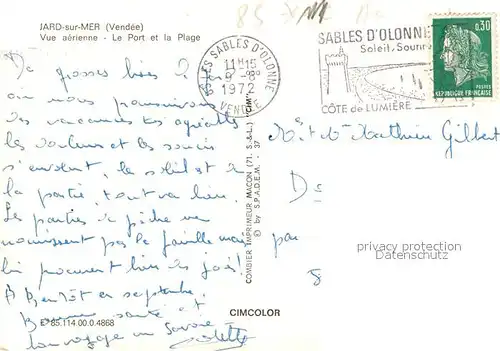 JARD-sur-MER (Vendée)
Vue aérienne - Le Port et la Plage
De grosses bises de Jard
où nous poursuivons
des vacances très agréables
les douleurs et les soucis
s'envolent, le soleil est de
la partie, tout va bien.
Les parties de pêche ne
nourrissent pas la famille mais
lui procurent bien des joies!
A Bientôt en septembre
Bonne santé et
bon voyage en Savoie
Colette
E 85.114.00.0.4868
CIMCOLOR
COMBIER IMPRIMEUR MACON (71. S.-&-L.) "CIM"
© by S.P.A.D.E.M. 37
LES SABLES D'OLONNE
11H15
9 -8
1972
VENDÉE
SABLES D'OLONNE
Soleil, Souri
CÔTE de LUMIÈRE
0,30
POSTES
REPUBLIQUE FRANÇAISE
85
Mr et Me Mathieu Gilbert
par
privacy protection
DSGVO